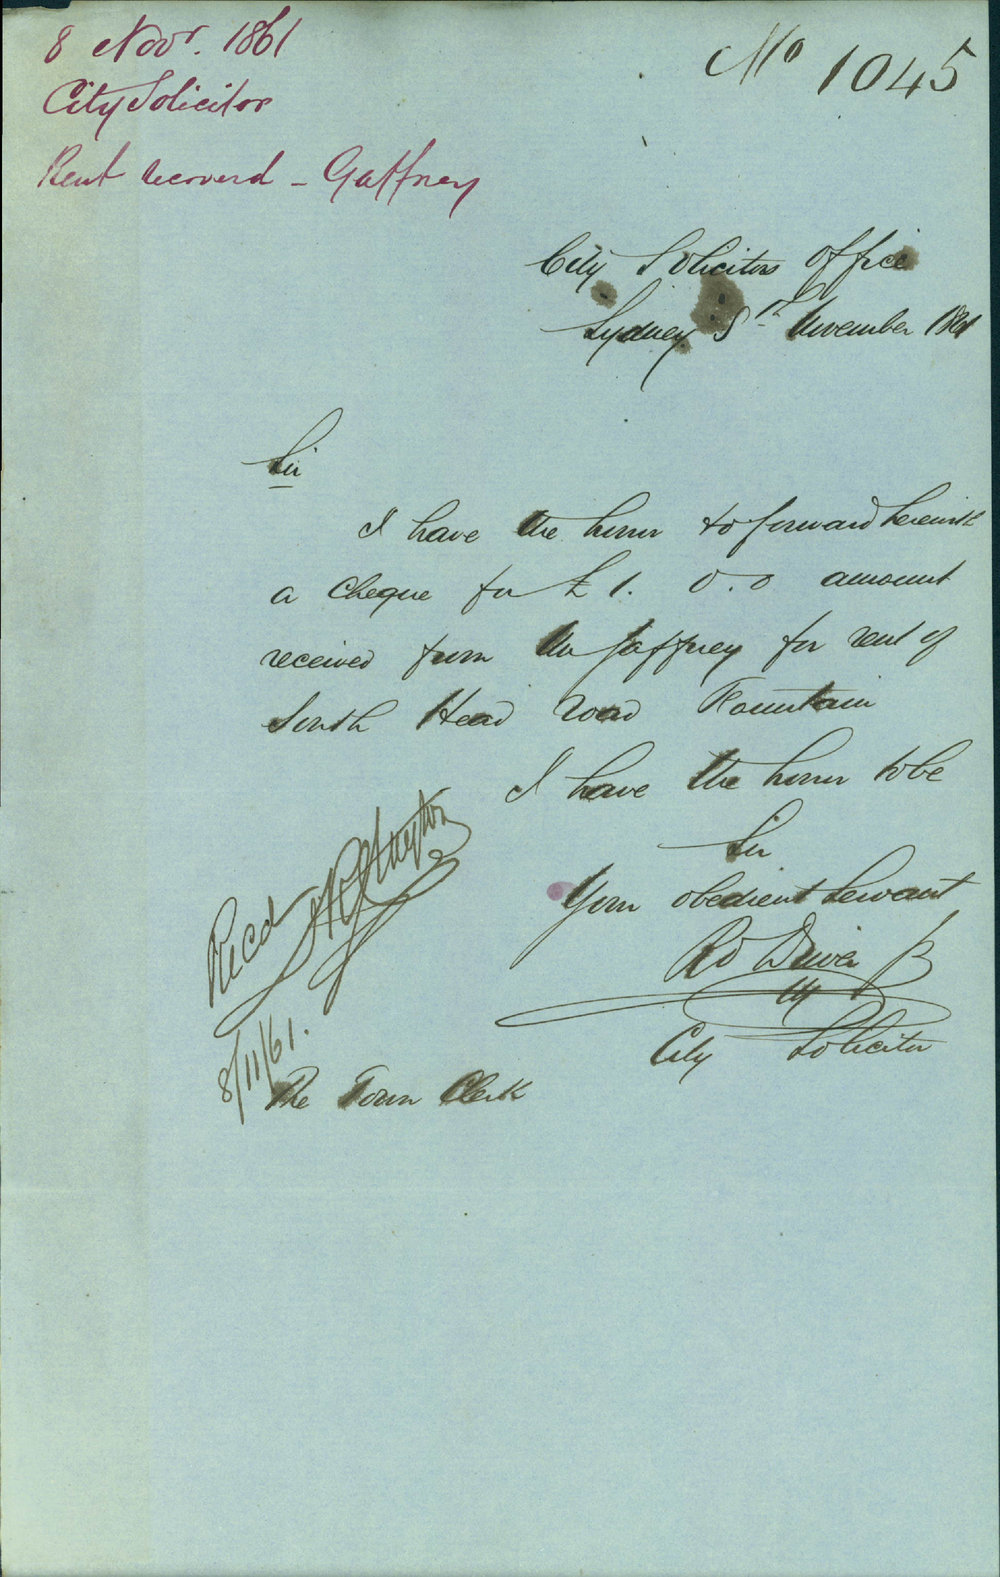 8 Novr. 1861
No 1045
City Solicitor
Rent recoverd - Gaffney
City Solicitors Office
Sydney 8th November 1861
Sir
I have the honor to forward herewith
a Cheque for £ 1. 0. 0 amount
received from Mr Gaffney for rent of
South Head Road Fountain
I have the honor to be
Sir
Your obedient Servant
Rd Driver Jr
City Solicitor
Recd
8/11/61.
The Town Clerk